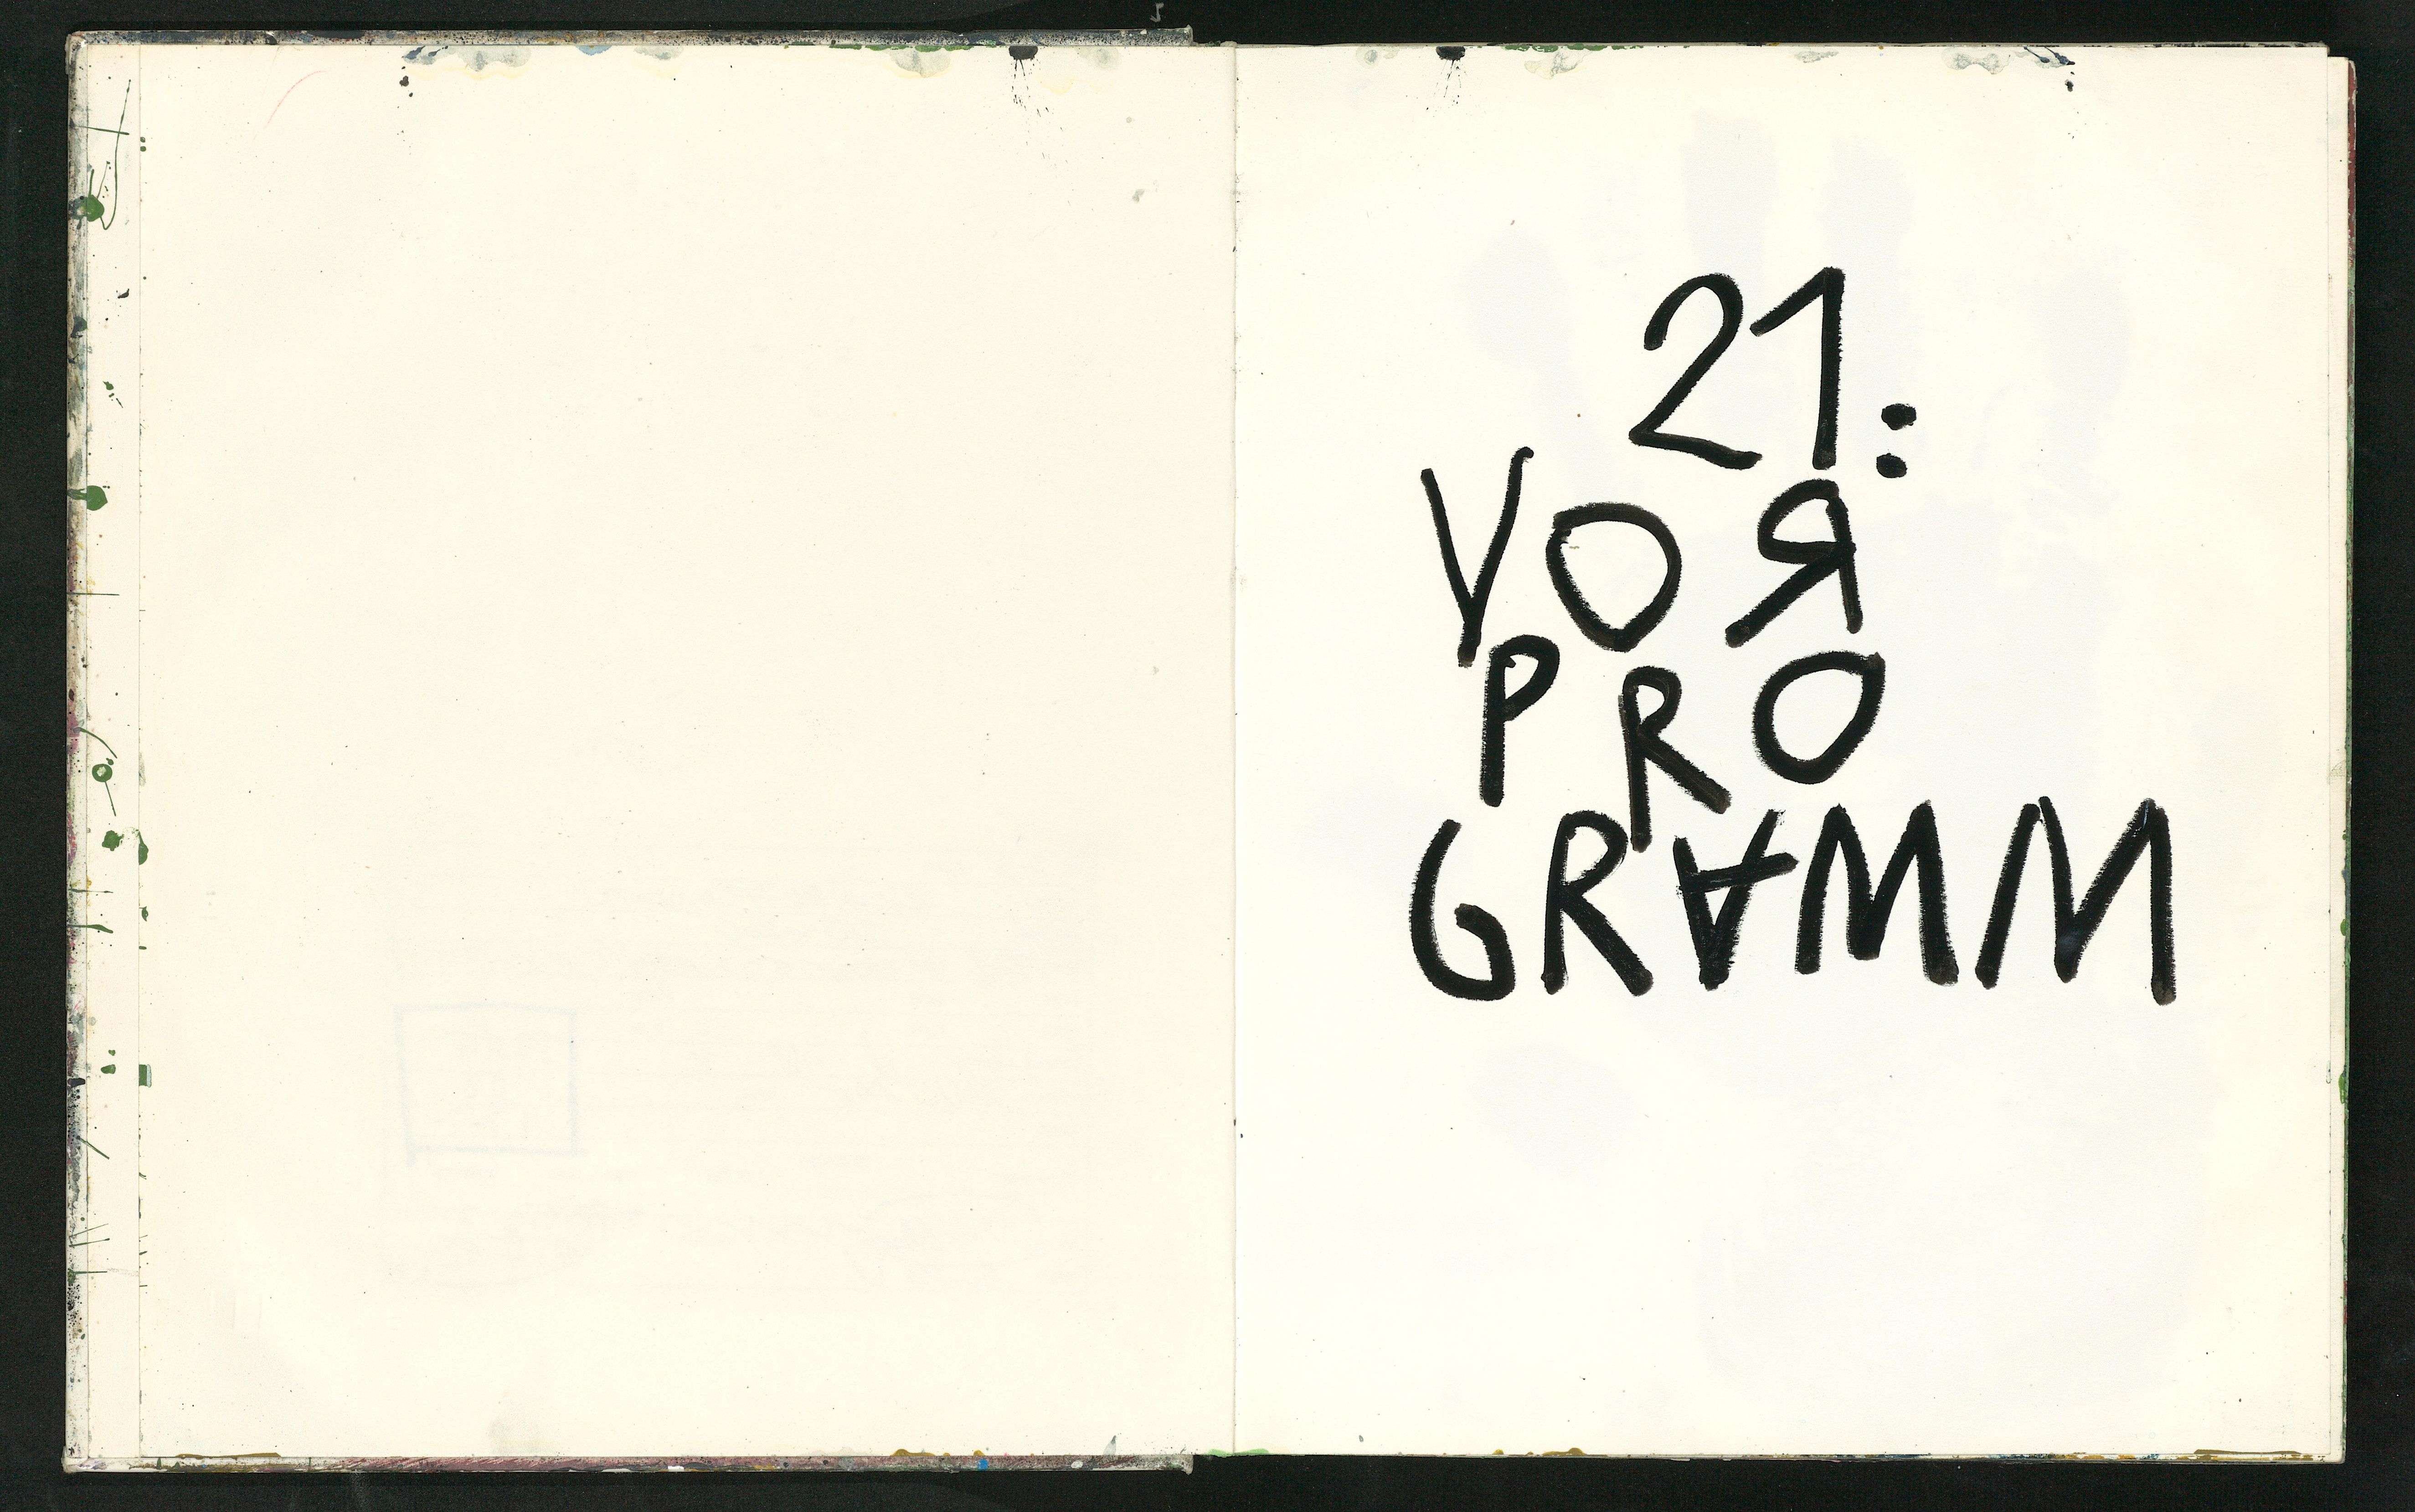 21:
VOR
PRO
GRAMM